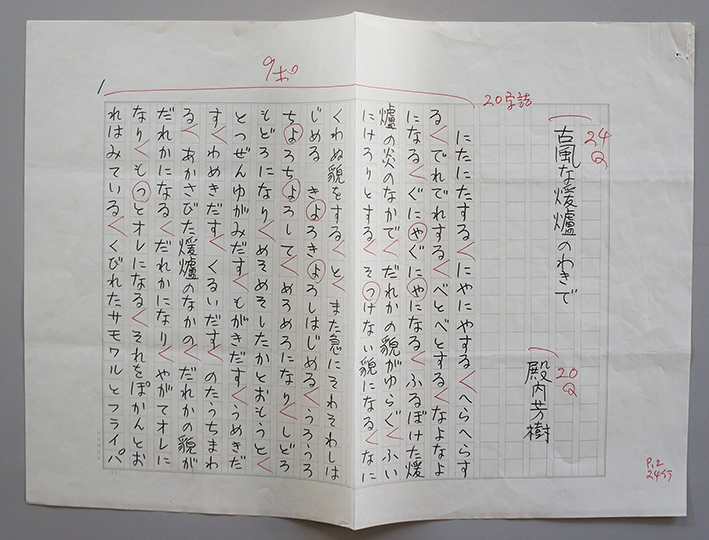 古風な煖爐のわきで
24
Q
殿内芳樹
20
Q
20字詰
9ポ
P.2
24行
にたにたする く にやにやする く へらへらす
る く でれでれする く べとべとする く なよなよ
になる く ぐにやぐにやになる く ふるぼけた煖
爐の炎のなかで く だれかの貌がゆらぐ く ふい
にけろりとする く そつけない貌になる く なに
くわぬ貌をする く と く また急にそわそわしは
じめる きよろきよろしはじめる く うろうろ
ちよろちよろして く めろめろになり く しどろ
もどろになり く めそめそしたかとおもうと く
とつぜんゆがみだす く もがきだす く うめきだ
す く わめきだす く くるいだす く のたうちまわ
る く あかさびた煖爐のなかの く だれかの貌が
だれかになる く だれかになり く やがてオレに
なり く もつとオレになる く それをぽかんとお
れはみている く くびれたサモワルとフライパ